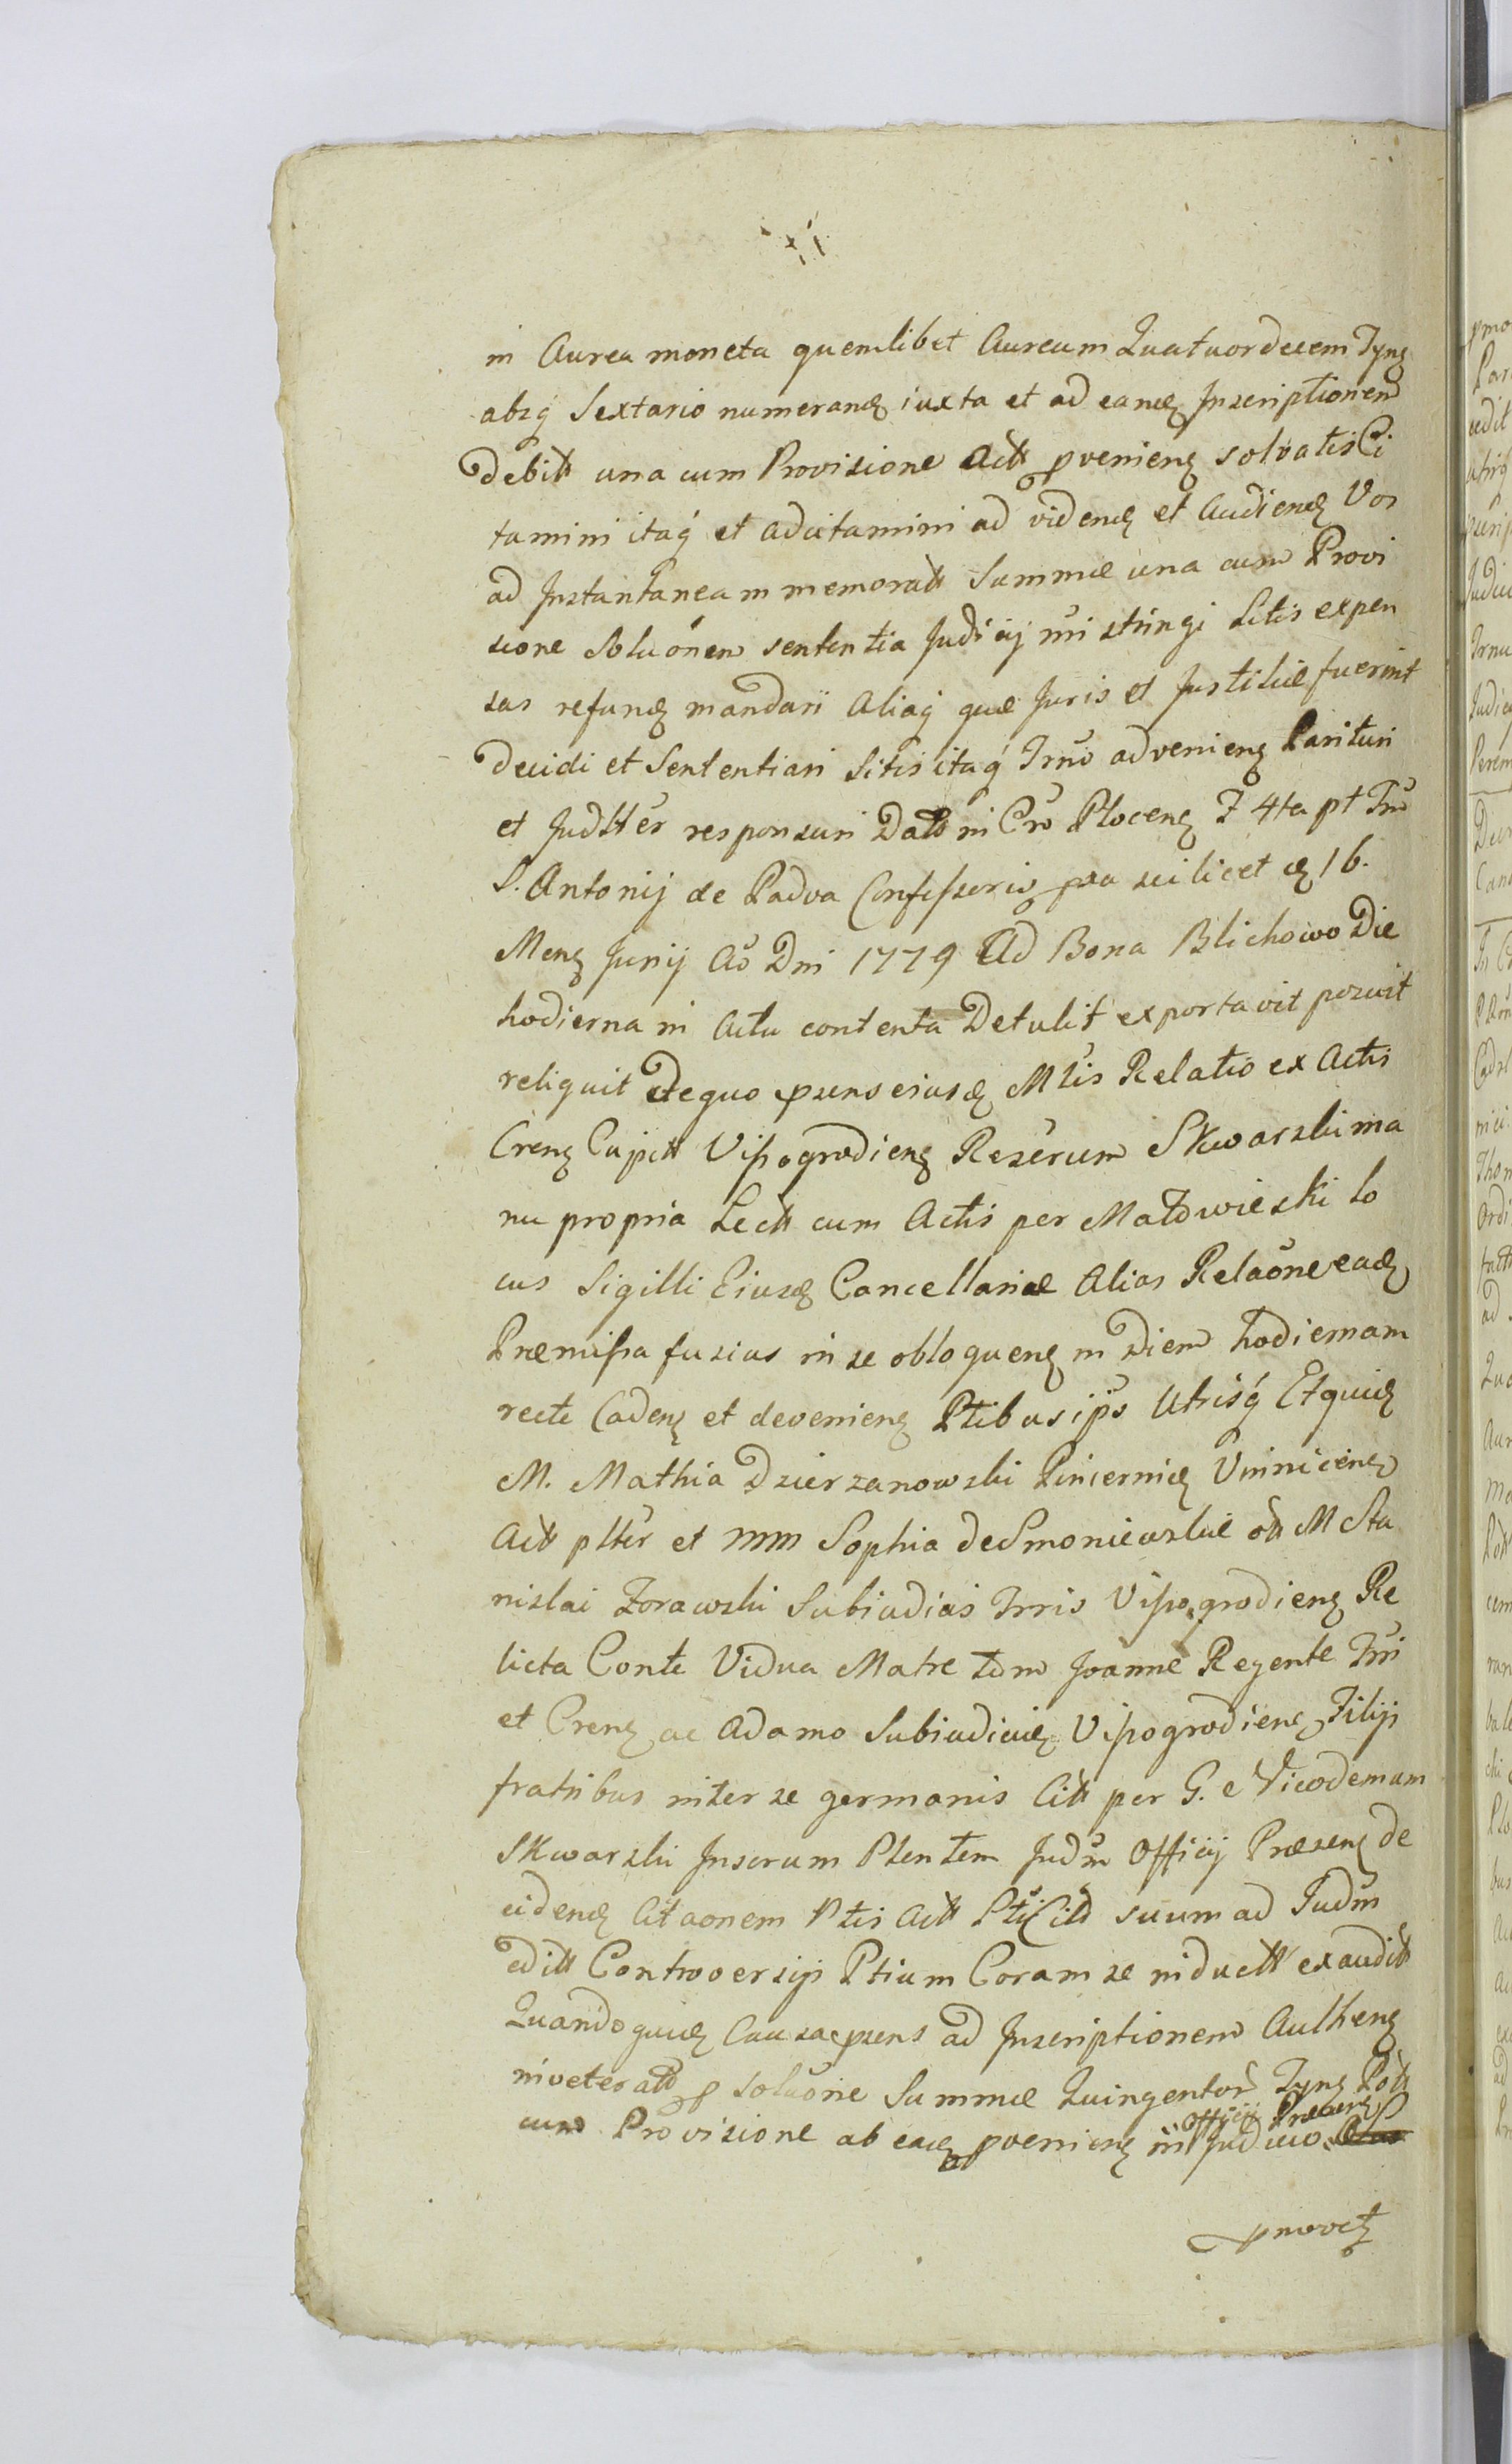 in Aurea moneta quemlibet Aureum Quatuordecem Tynȝ
absq Sextario numeranȝ iuxta et ad eandȝ Inscriptionem
Debitt una cum Provisione Actt pvenienȝ solvatis Ci
tamini itaq et adcitamini ad videndȝ et Audiendȝ Vos
ad Instantaneam memoratt Summæ una cum Provi
sione Soluõnem sententia Judicij nri stringi Litis expen
sas refundȝ mandari Aliaq quæ Juris et Justitiæ fuerint
decidi et Sententiari Sitis itaq Trno advenienȝ Parituri
et Judltter responsuri Datt in Cro Plocenȝ F 4ta pt Fm
S. Antonij de Padva Confessoris pa scilicet dȝ 16.
Menȝ Junij Ao Dni 1779 Ad Bona Blichowo Die
hodierna in Actu contenta Detulit exportavit posuit
reliquit Dequo psens eiusdȝ Mlis Relatio ex Actis
Crenȝ Capitt Visogrodienȝ Reserum Skwarski ma
nu propria Lectt cum Actis per Małowieski Lo
cus Sigilli Eiusdȝ Cancellariæ Alias Relaõne eadȝ
Præmissa fusius in se obloquenȝ in diem hodiernam
recte Cadenȝ et devenienȝ Ptibus ipis Utrisq Etquidȝ
M. Mathia Dzierzanowski Pincernidȝ Vinnicenȝ
Actt pltter et mm Sophia de Smoniewskie ott M Sta
nislai Zorawski Subiudicis Trris Visogrodienȝ Re
licta Conte Vidua Matre tdm Joanne Regente Trri
et Crenȝ ac Adamo Subiudicidȝ Visogrodienȝ Filijs
fratribus inter se germanis Citt per G. Nicodemum
Skwarski Inscrum Plentem Judm Officij Præsenȝ de
cidendȝ Citaonem Ptis Actt Pti Citt suum ad Judm
editt Controversijs Ptium Coram se inductt exauditt
Quandoquidȝ Causa psens ad Inscriptionem Authenȝ
inveteratt p soluõne Summæ Quingentor Tynȝ Pott
cum Provisione ab eadȝ pvenienȝ in Judicio Officij Præsenȝ
pmovetȝ